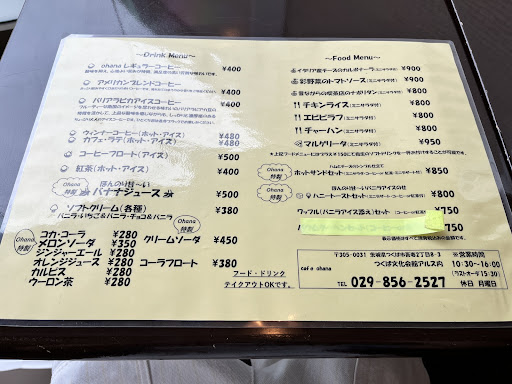 ～Drink Menu～
ohana レギュラーコーヒー ¥400
アメリカンブレンドコーヒー ¥400
バリアラビカアイスコーヒー ¥400
ウィンナーコーヒー(ホット・アイス) ¥480
カフェ・ラテ(ホット・アイス) ¥480
コーヒーフロート(アイス) ¥500
紅茶(ホット・アイス) ¥400
Ohana特製
ほんのり甘～い
バナナジュース ¥500
ソフトクリーム(各種) ¥380
バニラ・いちご&バニラ・チョコ&バニラ
Ohana特製
コカ・コーラ ¥280
メロンソーダ ¥350
ジンジャーエール ¥280
オレンジジュース ¥280
カルピス ¥280
ウーロン茶 ¥280
Ohana特製
クリームソーダ ¥450
コーラフロート ¥380
フード・ドリンク
テイクアウトOKです。
～Food Menu～
イタリア産チーズのカルボナーラ(ミニサラダ付) ¥900
彩野菜のトマトソース(ミニサラダ付) ¥900
昔ながらの喫茶店のナポリタン(ミニサラダ付) ¥800
チキンライス(ミニサラダ付) ¥800
エビピラフ(ミニサラダ付) ¥800
チャーハン(ミニサラダ付) ¥800
マルゲリータ(ミニサラダ付) ¥850
Ohana特製
ホットサンドセット ¥850
Ohana特製
ほんのり甘～いバニラアイスの
ハニートーストセット ¥800
ワッフル(バニラアイス添え)セット ¥750
¥750
〒305-0031 茨城県つくば市吾妻2丁目8-3
つくば文化会館アルス内
cafe ohana
TEL 029-856-2527
※営業時間
10:30～16:00
(ラストオーダ15:30)
休日 月曜日